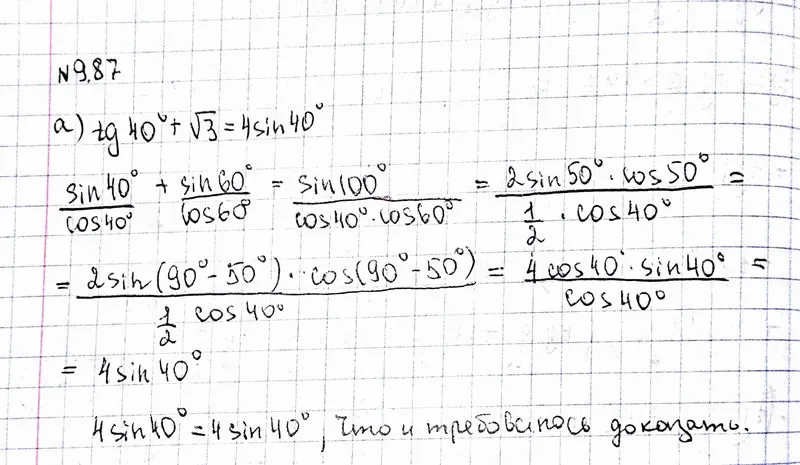 N9.87
а) tg 40° + √3 = 4sin40°
sin40°/cos40° + sin60°/cos60° = sin100°/(cos40°·cos60°) = 2sin50°·cos50°/(1/2·cos40°) =
= 2sin(90°-50°)·cos(90°-50°)/(1/2 cos40°) = 4cos40°·sin40°/cos40° =
= 4sin40°
4sin40° = 4sin40°, что и требовалось доказать.